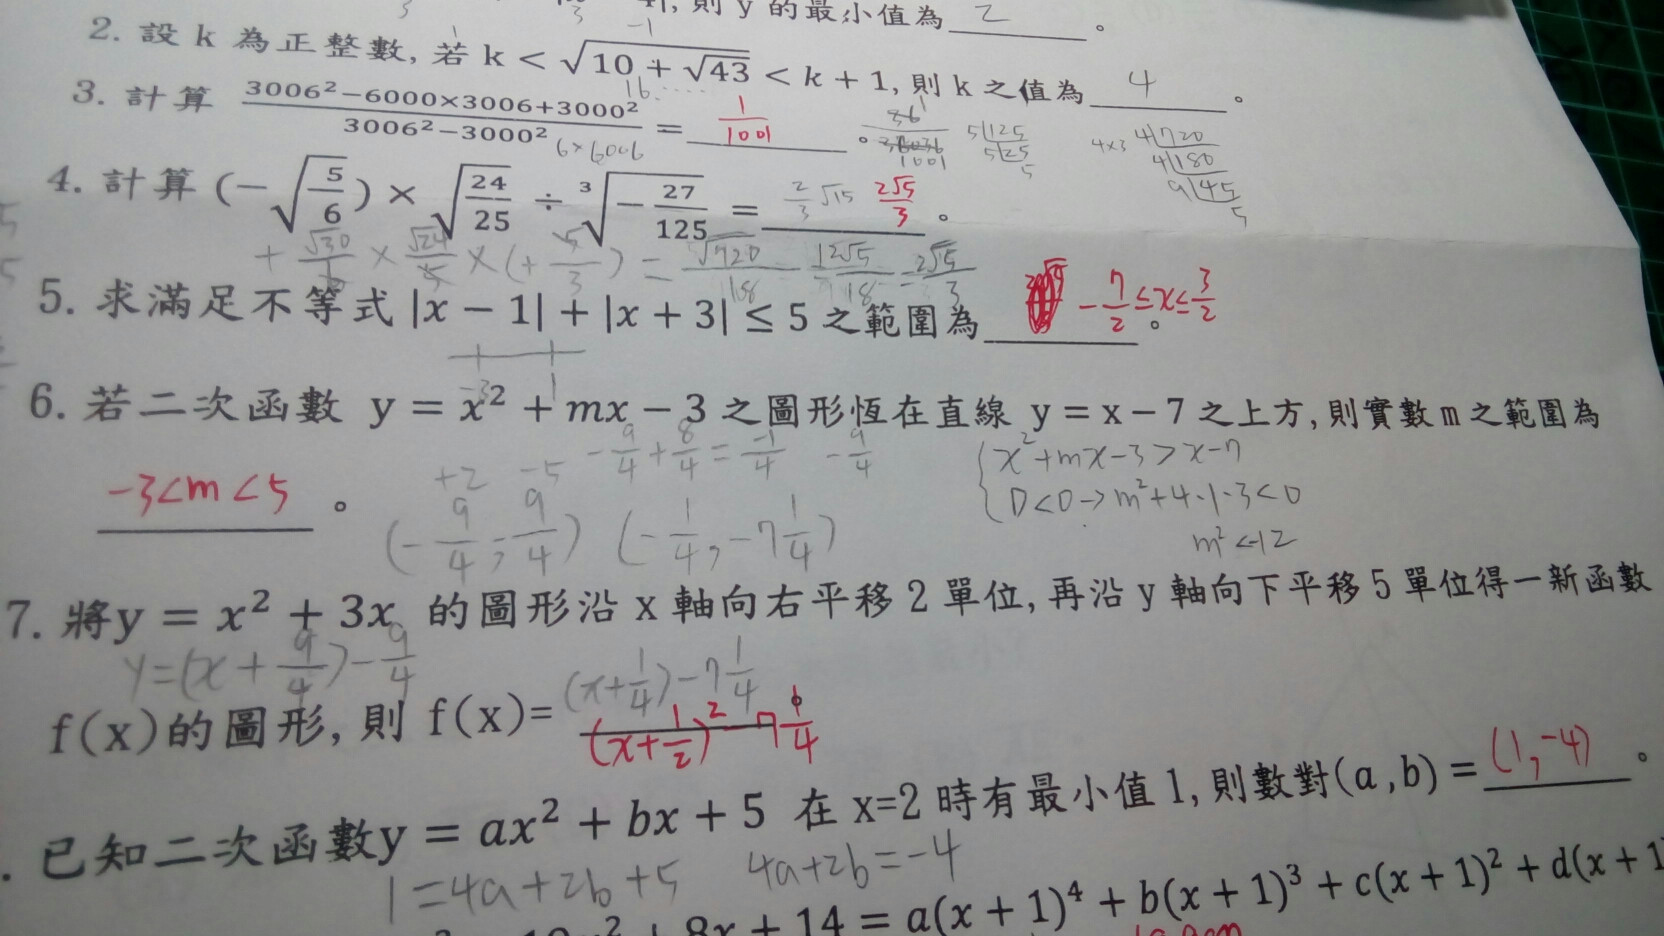 則 y 的最小值為 2 。
2. 設 k 為正整數, 若 k < √(10 + √43) < k + 1, 則 k 之值為 4 。
16......
3. 計算 (3006²−6000×3006+3000²)/(3006²−3000²) = 1/1001 。
6×6006
36/36036 1001
5|125
5|25
5
4×3 4|720
4|180
9|45
5
4. 計算 (−√(5/6)) × √(24/25) ÷ ³√(−27/125) = 2/3 √15 2√5/3 。
5. 求滿足不等式 |x − 1| + |x + 3| ≤ 5 之範圍為 −7/2 ≤ x ≤ 3/2 。
-3 1
6. 若二次函數 y = x² + mx − 3 之圖形恆在直線 y = x − 7 之上方, 則實數 m 之範圍為
-3<m<5 。
+2 -5
-9/4 + 8/4 = -1/4 -9/4
(-9/4, -9/4) (-1/4, -7 1/4)
x²+mx-3>x-7
D<0→m²+4·1·3<0
m²<-12
7. 將y = x² + 3x 的圖形沿 x 軸向右平移 2 單位, 再沿 y 軸向下平移 5 單位得一新函數
y=(x+9/4)-9/4
(x+1/4)-7 1/4
f(x)的圖形, 則 f(x)= (x+1/2)²-7 1/4
. 已知二次函數y = ax² + bx + 5 在 x=2 時有最小值 1, 則數對(a,b) = (1,-4) 。
1=4a+2b+5 4a+2b=-4
8x + 14 = a(x + 1)⁴ + b(x + 1)³ + c(x + 1)² + d(x + 1